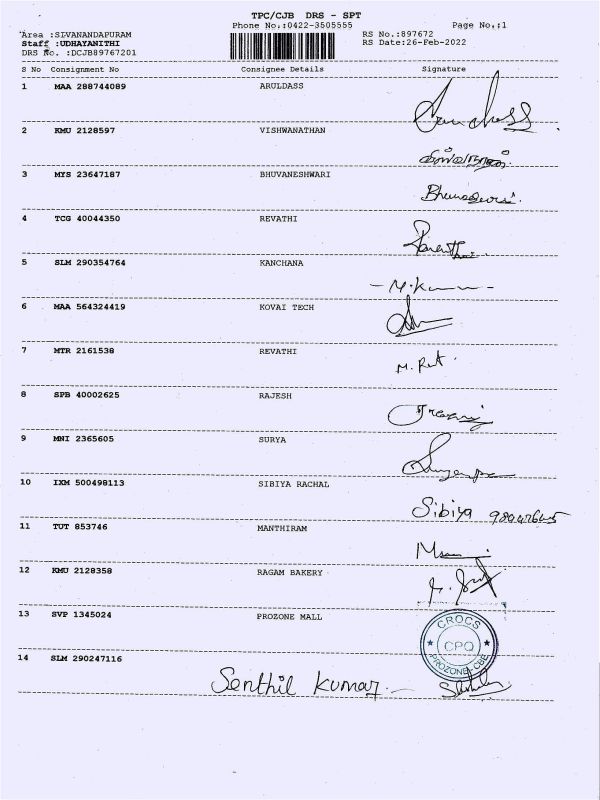 TPC/CJB DRS - SPT
Phone No.:0422-3505555 Page No.:1
Area :SIVANANDAPURAM RS No.:897672
Staff :UDHAYANITHI RS Date:26-Feb-2022
DRS No. :DCJB89767201
S No Consignment No Consignee Details Signature
1 MAA 288744089 ARULDASS
2 KMU 2128597 VISHWANATHAN
3 MYS 23647187 BHUVANESHWARI
4 TCG 40044350 REVATHI
5 SLM 290354764 KANCHANA
6 MAA 564324419 KOVAI TECH
7 MTR 2161538 REVATHI
M. Ret
8 SPB 40002625 RAJESH
9 MNI 2365605 SURYA
10 IXM 500498113 SIBIYA RACHAL
Sibiya
11 TUT 853746 MANTHIRAM
12 KMU 2128358 RAGAM BAKERY
13 SVP 1345024 PROZONE MALL
CROCS
CPQ
PROZONE-CBE
14 SLM 290247116
Senthil Kumar